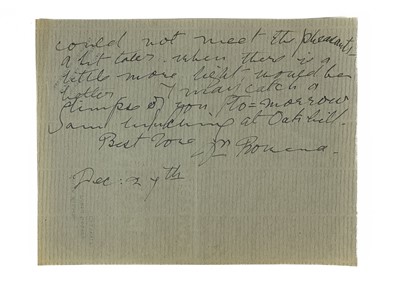 could not meet the pheasants
a bit later when there is a
little more light would be
better I may catch a
glimpse of you to-morrow
I am lunching at Oatshill.
Best love
Dec: 27th